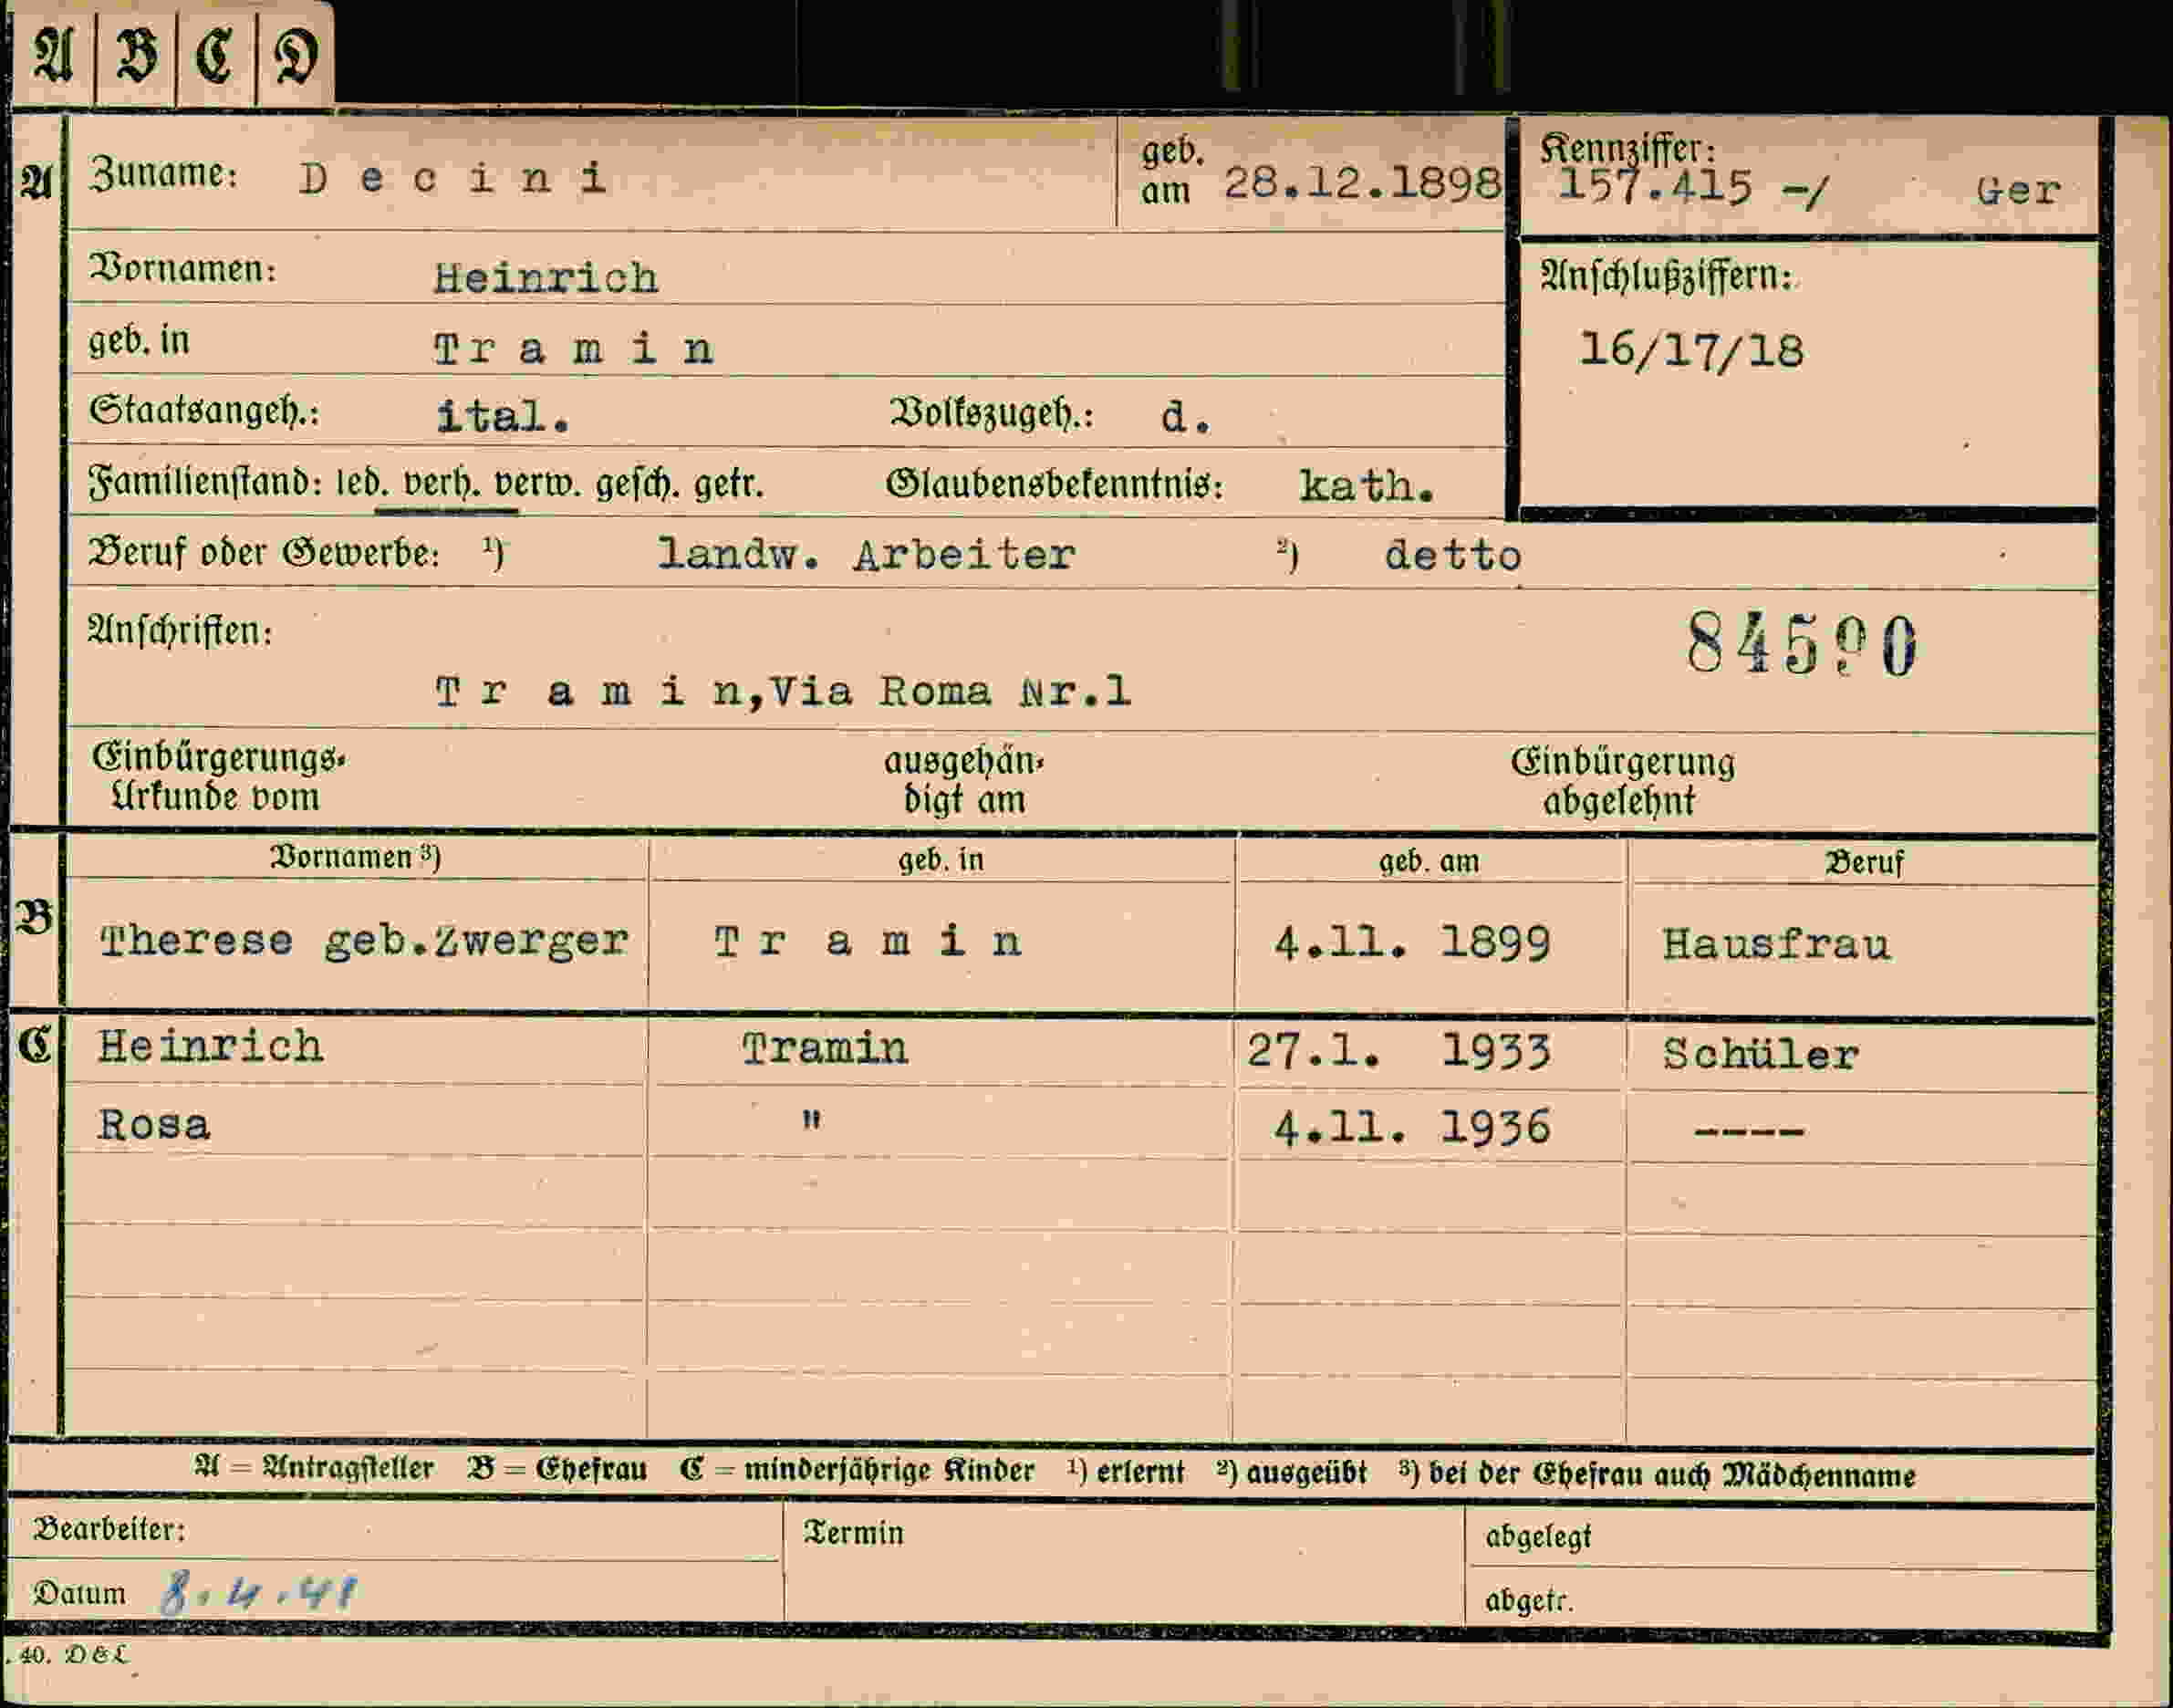 A B C D
A Zuname: Decini geb. am 28.12.1898 Kennziffer: 157.415 -/ Ger
Vornamen: Heinrich Anschlußziffern:
geb. in Tramin 16/17/18
Staatsangeh.: ital. Volkszugeh.: d.
Familienstand: led. verh. verw. gesch. getr. Glaubensbekenntnis: kath.
Beruf oder Gewerbe: ¹) landw. Arbeiter ²) detto
Anschriften: 84590
Tramin,Via Roma Nr.1
Einbürgerungs- ausgehän- Einbürgerung
Urkunde vom digt am abgelehnt
Vornamen ³) geb. in geb. am Beruf
B Therese geb.Zwerger Tramin 4.11. 1899 Hausfrau
C Heinrich Tramin 27.1. 1933 Schüler
Rosa " 4.11. 1936 ----
A = Antragsteller B = Ehefrau C = minderjährige Kinder ¹) erlernt ²) ausgeübt ³) bei der Ehefrau auch Mädchenname
Bearbeiter: Termin abgelegt
Datum 8.4.41 abgetr.
. 40. D&L